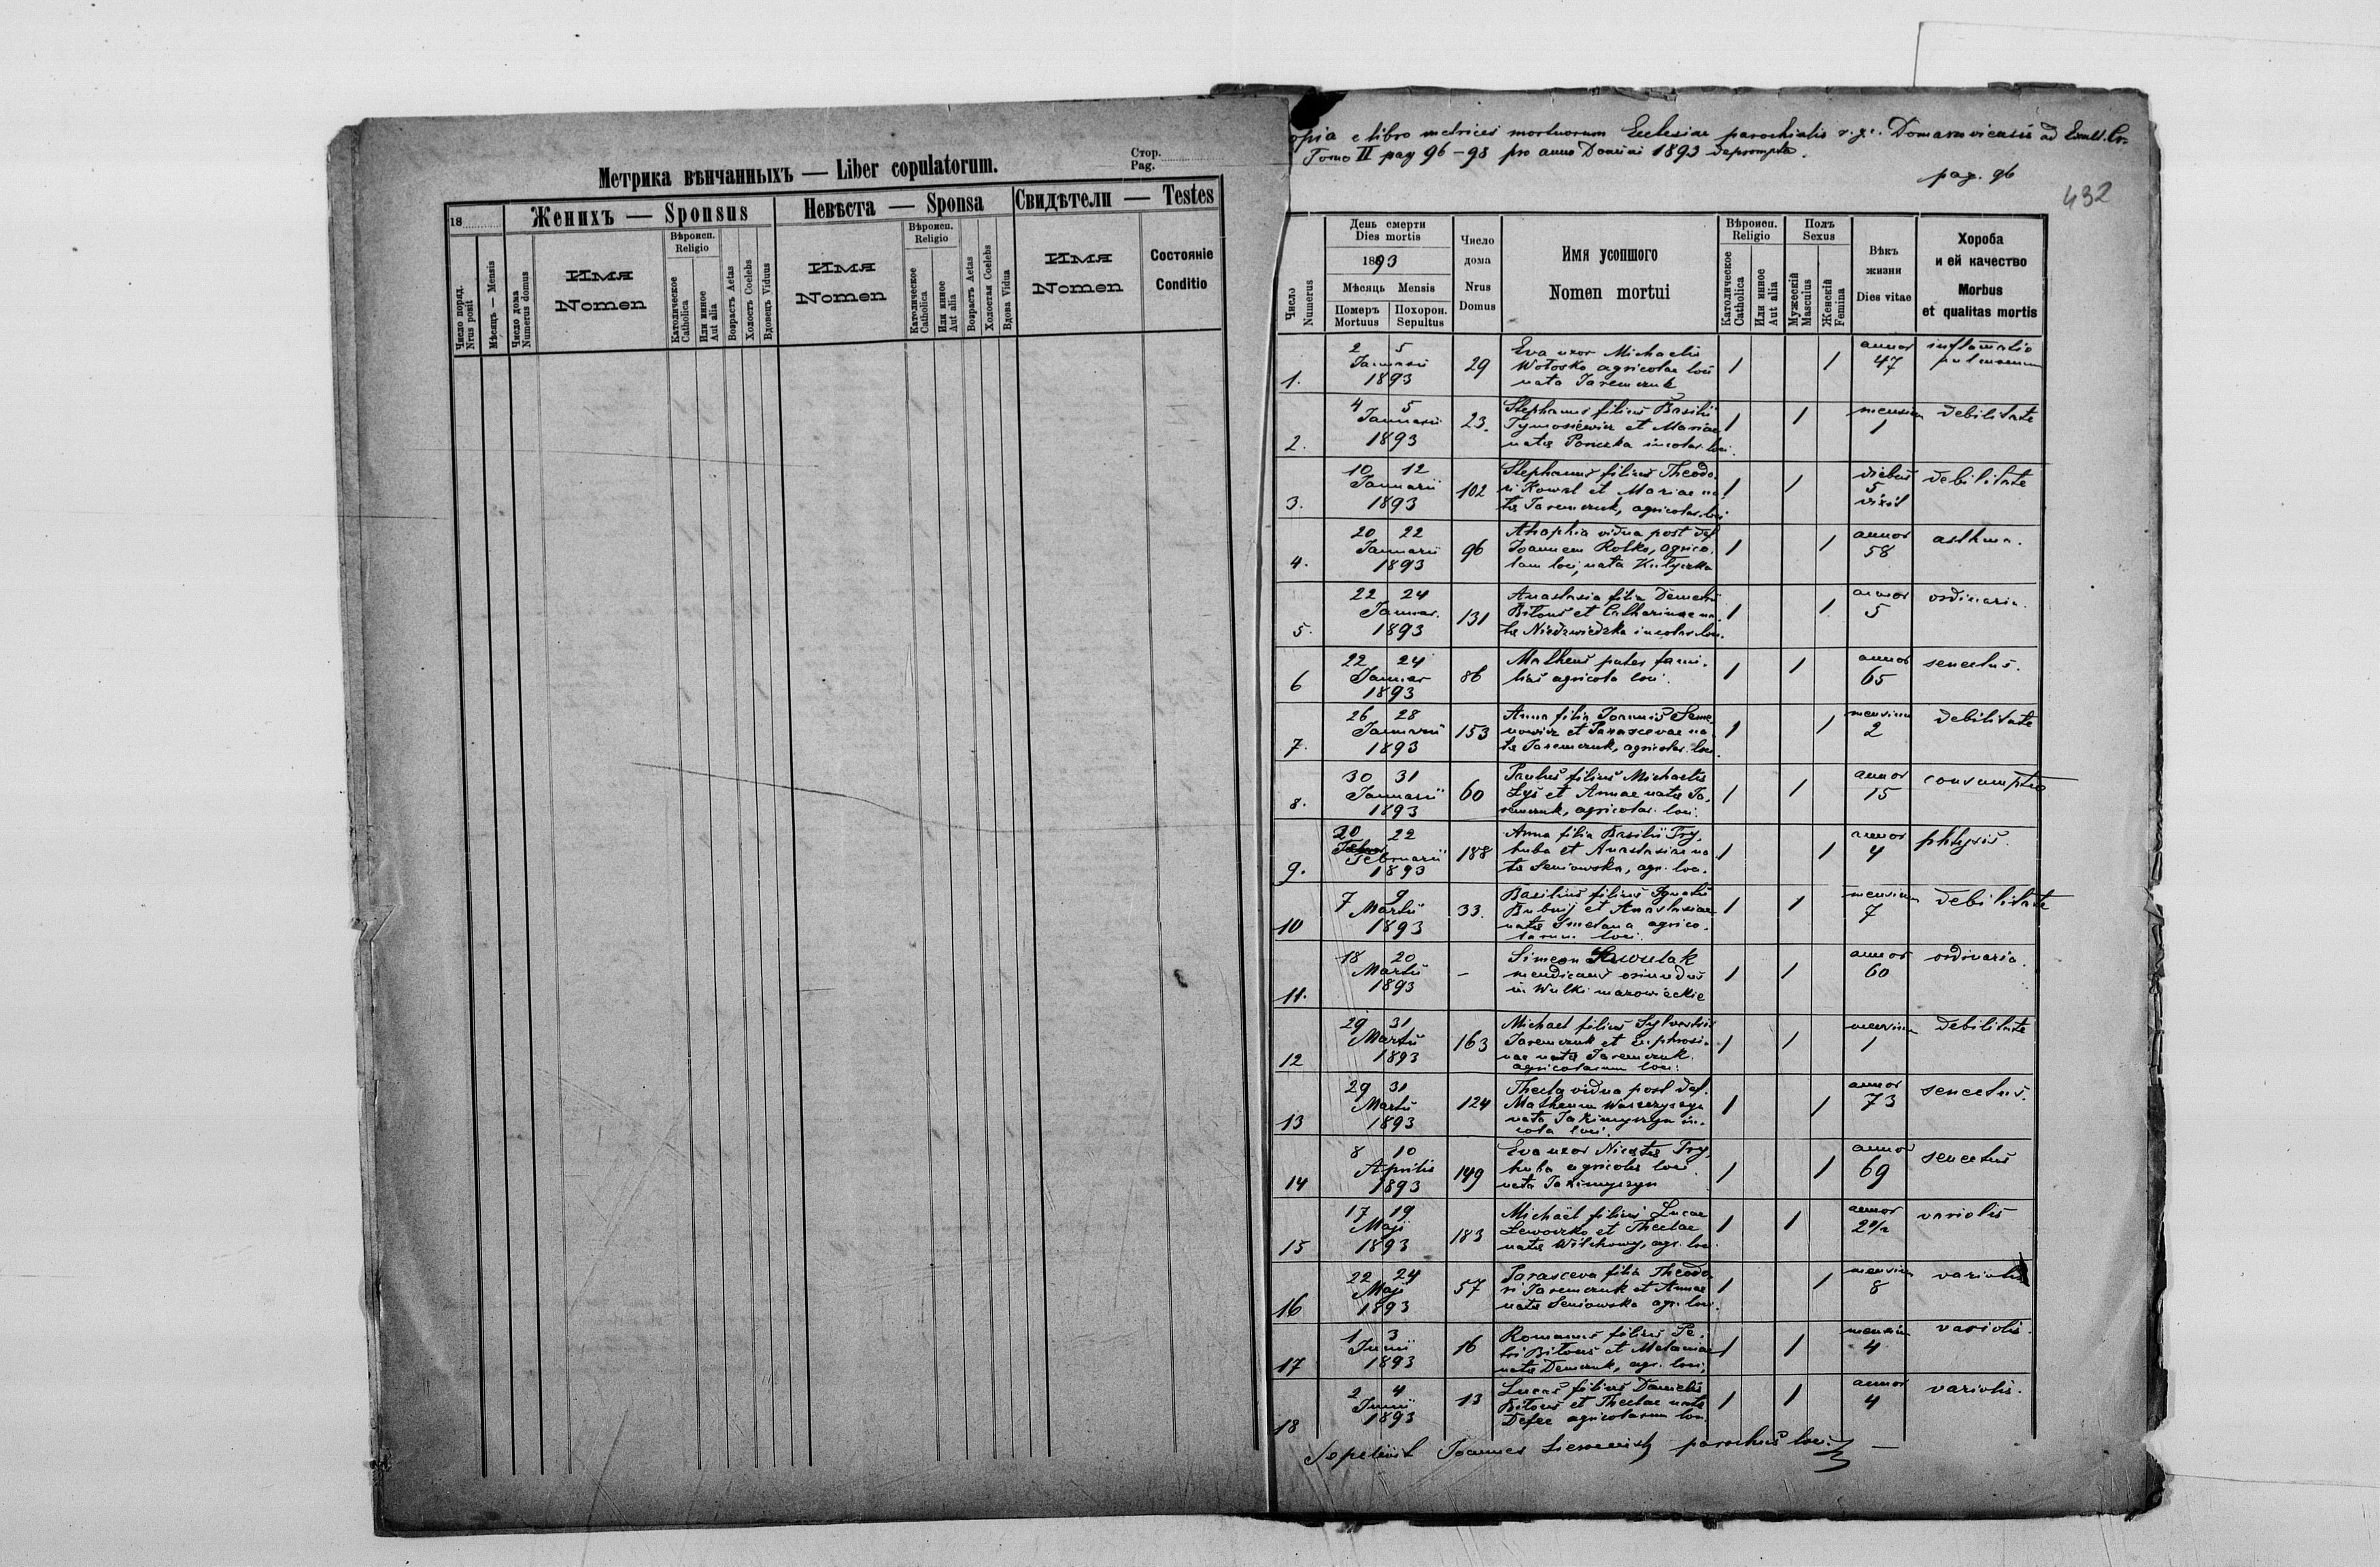 Метрика вѣнчанныхъ — Liber copulatorum.
Стор.
Pag.
18
Женихъ — Sponsus
Невѣста — Sponsa
Свидѣтели — Testes
Число поряд.
Nrus posit
Мѣсяць — Mensis
Число дома
Numerus domus
Имя
Nomen
Вѣроисп.
Religio
Католическое
Catholica
Или инное
Aut alia
Возрастъ Aetas
Холостъ Coelebs
Вдовецъ Viduus
Имя
Nomen
Вѣроисп.
Religio
Католическое
Catholica
Или инное
Aut alia
Возрастъ Aetas
Холостая Coelebs
Вдова Vidua
Имя
Nomen
Состояніе
Conditio
opia e libro metrices mortuorum Ecclesiae parochialis r. gr. Domamovicensis ad
Tomo II pag 96-98 pro anno Domini 1893 deprompta.
pag. 96
432
Число
Numerus
День смерти
Dies mortis
1893
Мѣсяць Mensis
Померъ
Mortuus
Похорон.
Sepultus
Число
дома
Nrus
Domus
Имя усопшого
Nomen mortui
Вѣроисп.
Religio
Католическое
Catholica
Или инное
Aut alia
Полъ
Sexus
Мужескій
Masculus
Женскій
Femina
Вѣкъ
жизни
Dies vitae
Хороба
и ей качество
Morbus
et qualitas mortis
1. 2 5 Januarii 1893 29
Eva uxor Michaelis
Wołosko agricolae loci
nata Jaremczuk
1 1 annor 47 inflamatio pulmonum
2. 4 5 Januarii 1893 23.
Stephanus filius Basilii
Tymosiewicz et Mariae
natae incolar. loci.
1 1 mensium 1 debilitate
3. 10 12 Januarii 1893 102
Stephanus filius Theodo-
ri Kowal et Mariae na-
tae Jaremczuk, agricolar. loci
1 1 diebus 5 vixit debilitate
4. 20 22 Januarii 1893 96
vidua post def.
Joannem Rolko, agrico-
lam loci, nata
1 1 annor 58 asthma.
5. 22 24 Januar. 1893 131
Anastasia filia Demetrii
Bitous et Catharinae na-
tae Niedzwiedzka incolar. loci.
1 1 annor 5 ordinaria.
6 22 24 Januar 1893 86
Matheus pater fami-
lias agricola loci.
1 1 annor 65 senectus.
7. 26 28 Januarii 1893 153
Anna filia Joannis Seme-
nowicz et Parascevae na-
tae Jaremczuk, agricolar. loci
1 1 mensium 2 debilitate
8. 30 31 Januarii 1893 60
Paulus filius Michaelis
Łyś et Annae natae Ja-
remczuk, agricolar. loci.
1 1 annor 15 consumptio
9. 20 22 Februarii 1893 188
Anna filia Basilii Try-
huba et Anastasiae na-
tae Seniowska, agr. loci.
1 1 annor 4 phtysis.
10 7 9 Martii 1893 33.
Basilius filius Ignatii
Bubnij et Anastasiae
natae Smetana agrico-
larum loci.
1 1 mensium 7 debilitate
11. 18 20 Martii 1893 -
Simeon
mendicans oriundus
in Wulki mazowieckie
1 1 annor 60 ordinaria.
12 29 31 Martii 1893 163
Michael filius Sylvestris
Jaremczuk et Euphrosi-
nae natae Jaremczuk.
agricolarum loci.
1 1 mensium 1 debilitate
13 29 31 Martii 1893 124
Thecla vidua post def.
Matheum
nata Jakimyszyn in-
cola loci.
1 1 annor 73 senectus.
14 8 10 Aprilis 1893 149
Eva uxor Nicetae Try-
huba agricolae loci
nata Jakimyszyn
1 1 annor 69 senectus
15 17 19 Maji 1893 183
Michaël filius Lucae
Lewoczko et Theclae
natae Wilchowy, agr. loci.
1 1 annor 2 1/2 variolis
16 22 24 Maji 1893 57
Parasceva filia Theodo-
ri Jaremczuk et Annae
natae Seniowska agr. loci.
1 1 mensium 8 variolis
17 1 3 Junii 1893 16
Romanus filius Pe-
tri Bitous et Melaniae
natae Demczuk, agr. loci.
1 1 mensium 4 variolis.
18 2 4 Junii 1893 13
Lucas filius Danielis
Bitous et Theclae natae
Defec agricolarum loci.
1 1 annor 4 variolis.
Sepelivit Joannes parochus loci.